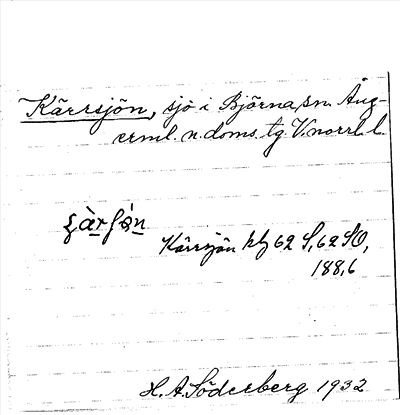 Kärrsjön, sjö i Björna sn. Ång-
erml. n. doms. tg. V.norrl. l.
Kärrsjön ktg 62 S, 62 SO,
188,6
H. A. Söderberg 1932